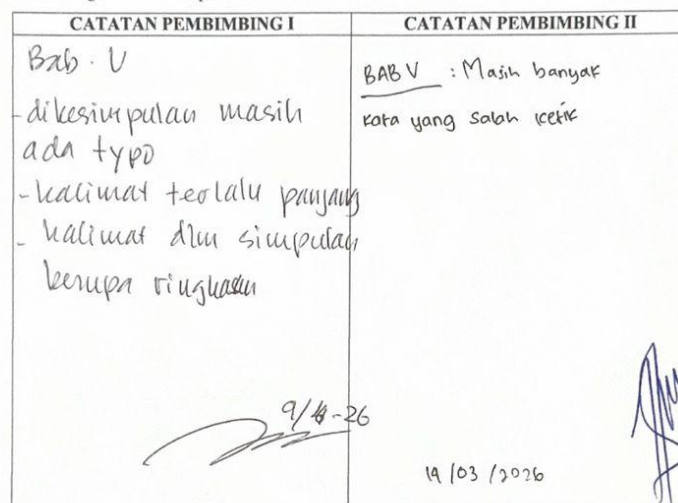 CATATAN PEMBIMBING I
CATATAN PEMBIMBING II
Bab. V
- dikesimpulan masih
ada typo
- kalimat terlalu panjang
- kalimat dlm simpulan
berupa ringkasan
9/4-26
BAB V : Masih banyak
kata yang salah ketik
19/03/2026